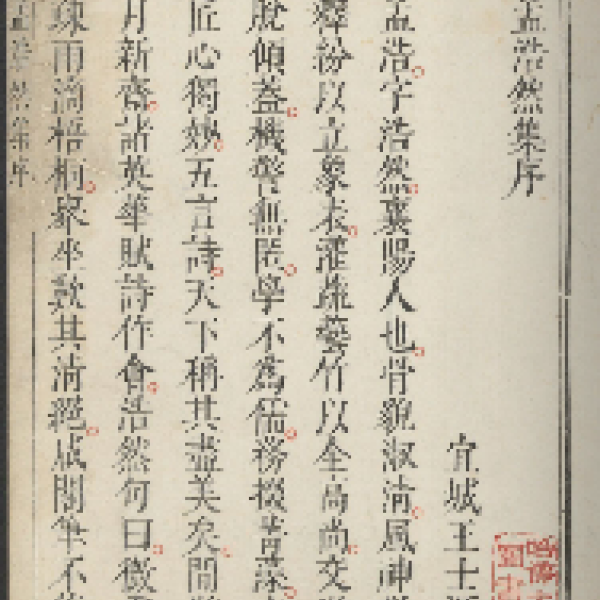 孟浩然集序
宜城王士
孟浩字浩然襄陽人也骨貌淑清風神
釋紛以立𧰼表灌蔬藝竹以全高尚交
脫傾蓋機警無匿學不為儒務掇菁藻
匠心獨妙五言詩天下稱其盡美矣間
月新霽諸英華賦詩作會浩然句曰微
踈雨滴梧桐舉坐歎其清絕咸閣筆不
孟浩然集序